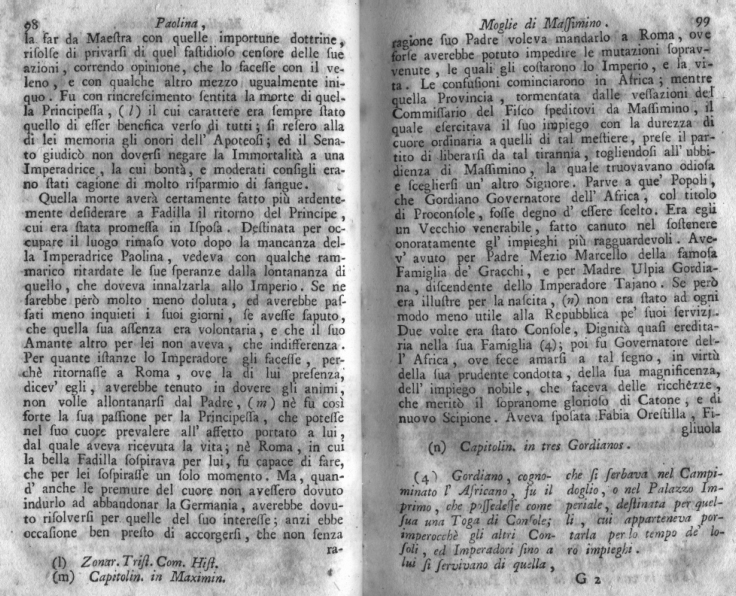 98 Paolina,
la far da Maestra con quelle importune dottrine,
risolse di privarsi di quel fastidioso censore delle sue
azioni, correndo opinione, che lo facesse con il ve-
leno, e con qualche altro mezzo ugualmente ini-
quo. Fu con rincrescimento sentita la morte di quel-
la Principessa, (l) il cui carattere era sempre stato
quello di esser benefica verso di tutti; si resero alla
di lei memoria gli onori dell' Apoteosi; ed il Sena-
to giudicò non doversi negare la Immortalità a una
Imperadrice, la cui bontà, e moderati consigli era-
no stati cagione di molto risparmio di sangue.
Quella morte averà certamente fatto più ardente-
mente desiderare a Fadilla il ritorno del Principe,
cui era stata promessa in Isposa. Destinata per oc-
cupare il luogo rimaso voto dopo la mancanza del-
la Imperadrice Paolina, vedeva con qualche ram-
marico ritardate le sue speranze dalla lontananza di
quello, che doveva innalzarla allo Imperio. Se ne
sarebbe però molto meno doluta, ed averebbe pas-
sati meno inquieti i suoi giorni, se avesse saputo,
che quella sua assenza era volontaria, e che il suo
Amante altro per lei non aveva, che indifferenza.
Per quante istanze lo Imperadore gli facesse, per-
chè ritornasse a Roma, ove la di lui presenza,
dicev' egli, averebbe tenuto in dovere gli animi,
non volle allontanarsi dal Padre, (m) nè fu così
forte la sua passione per la Principessa, che potesse
nel suo cuore prevalere all' affetto portato a lui,
dal quale aveva ricevuta la vita; nè Roma, in cui
la bella Fadilla sospirava per lui, fu capace di fare,
che per lei sospirasse un solo momento. Ma, quan-
d' anche le premure del cuore non avessero dovuto
indurlo ad abbandonar la Germania, averebbe dovu-
to risolversi per quelle del suo interesse; anzi ebbe
occasione ben presto di accorgersi, che non senza
ra-
(l) Zonar. Trist. Com. Hist.
(m) Capitolin. in Maximin.
Moglie di Massimino. 99
ragione suo Padre voleva mandarlo a Roma, ove
forse averebbe potuto impedire le mutazioni soprav-
venute, le quali gli costarono lo Imperio, e la vi-
ta. Le confusioni cominciarono in Africa; mentre
quella Provincia, tormentata dalle vessazioni del
Commissario del Fisco speditovi da Massimino, il
quale esercitava il suo impiego con la durezza di
cuore ordinaria a quelli di tal mestiere, prese il par-
tito di liberarsi da tal tirannia, togliendosi all' ubbi-
dienza di Massimino, la quale truovavano odiosa
e scegliersi un' altro Signore. Parve a que' Popoli,
che Gordiano Governatore dell' Africa, col titolo
di Proconsole, fosse degno d' essere scelto. Era egli
un Vecchio venerabile, fatto canuto nel sostenere
onoratamente gl' impieghi più ragguardevoli. Ave-
v' avuto per Padre Mezio Marcello della famosa
Famiglia de' Gracchi, e per Madre Ulpia Gordia-
na, discendente dello Imperadore Tajano. Se però
era illustre per la nascita, (n) non era stato ad ogni
modo meno utile alla Repubblica pe' suoi servizj.
Due volte era stato Console, Dignità quasi eredita-
ria nella sua Famiglia (4); poi fu Governatore del-
l' Africa, ove fece amarsi a tal segno, in virtù
della sua prudente condotta, della sua magnificenza,
dell' impiego nobile, che faceva delle ricchezze,
che meritò il sopranome glorioso di Catone, e di
nuovo Scipione. Aveva sposata Fabia Orestilla, Fi-
gliuola
(n) Capitolin. in tres Gordianos.
(4) Gordiano, cogno-
minato l' Africano, fu il
primo, che possedesse come
sua una Toga di Console;
imperocchè gli altri Con-
soli, ed Imperadori sino a
lui si servivano di quella,
che si serbava nel Campi-
doglio, o nel Palazzo Im-
periale, destinata per quel-
li, cui apparteneva por-
tarla per lo tempo de' lo-
ro impieghi.
G 2